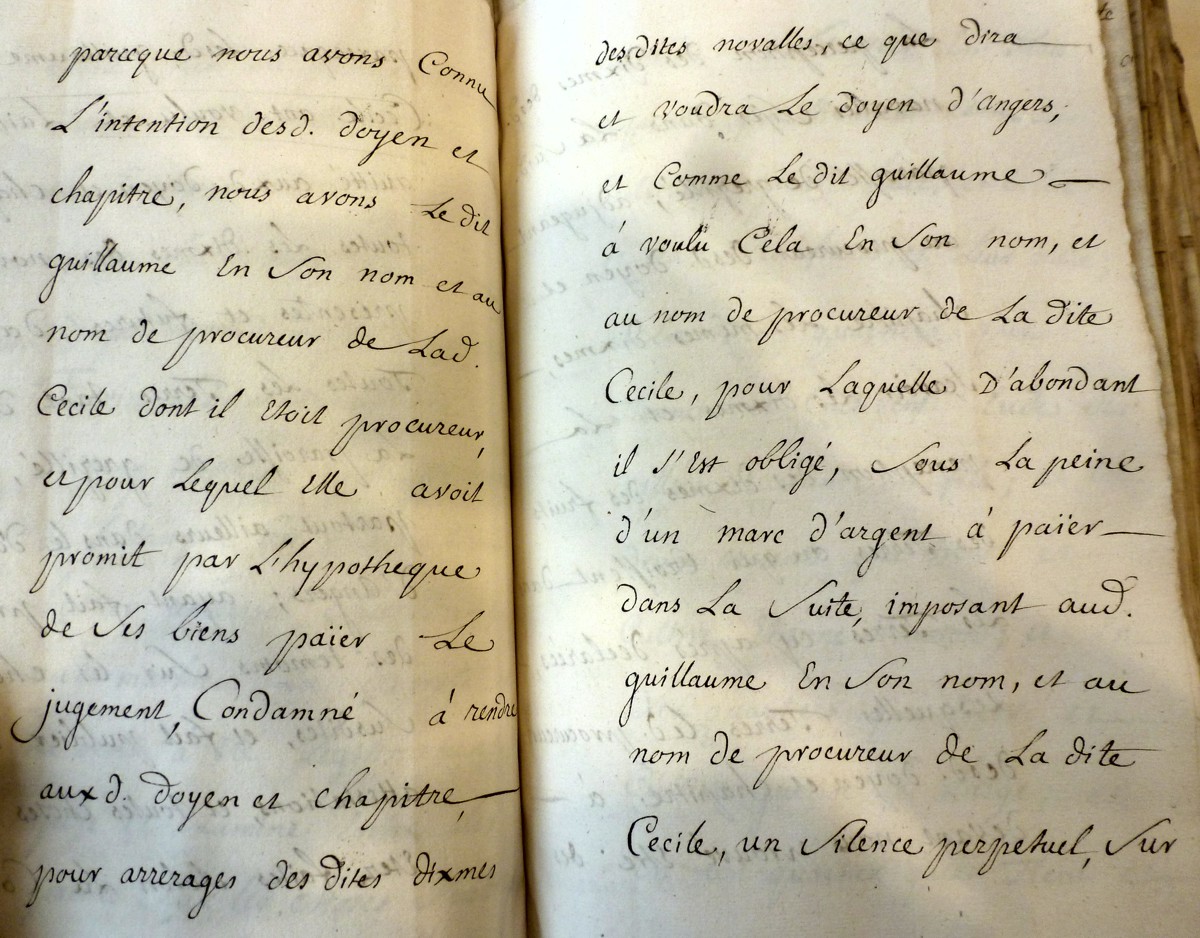 parceque nous avons Connu
L'intention desd. doyen et
chapitre, nous avons Le dit
guillaume En Son nom et au
nom de procureur de Lad.
Cecile dont il Etoit procureur,
et pour Lequel Elle avoit
promit par L'hypotheque
de Ses biens païer Le
jugement, Condamné á rendre
aux d. doyen et chapitre,
pour arrerages des dites dixmes
des dites novalles, ce que dira
et voudra Le doyen d'Angers,
et Comme Le dit guillaume
á voulu Cela En Son nom, et
au nom de procureur de La dite
Cecile, pour Laquelle D'abondant
il s'Est obligé, Sous La peine
d'un marc d'argent á païer
dans La Suite, imposant aud.
guillaume En Son nom, et au
nom de procureur de La dite
Cecile, un Silence perpetuel, Sur